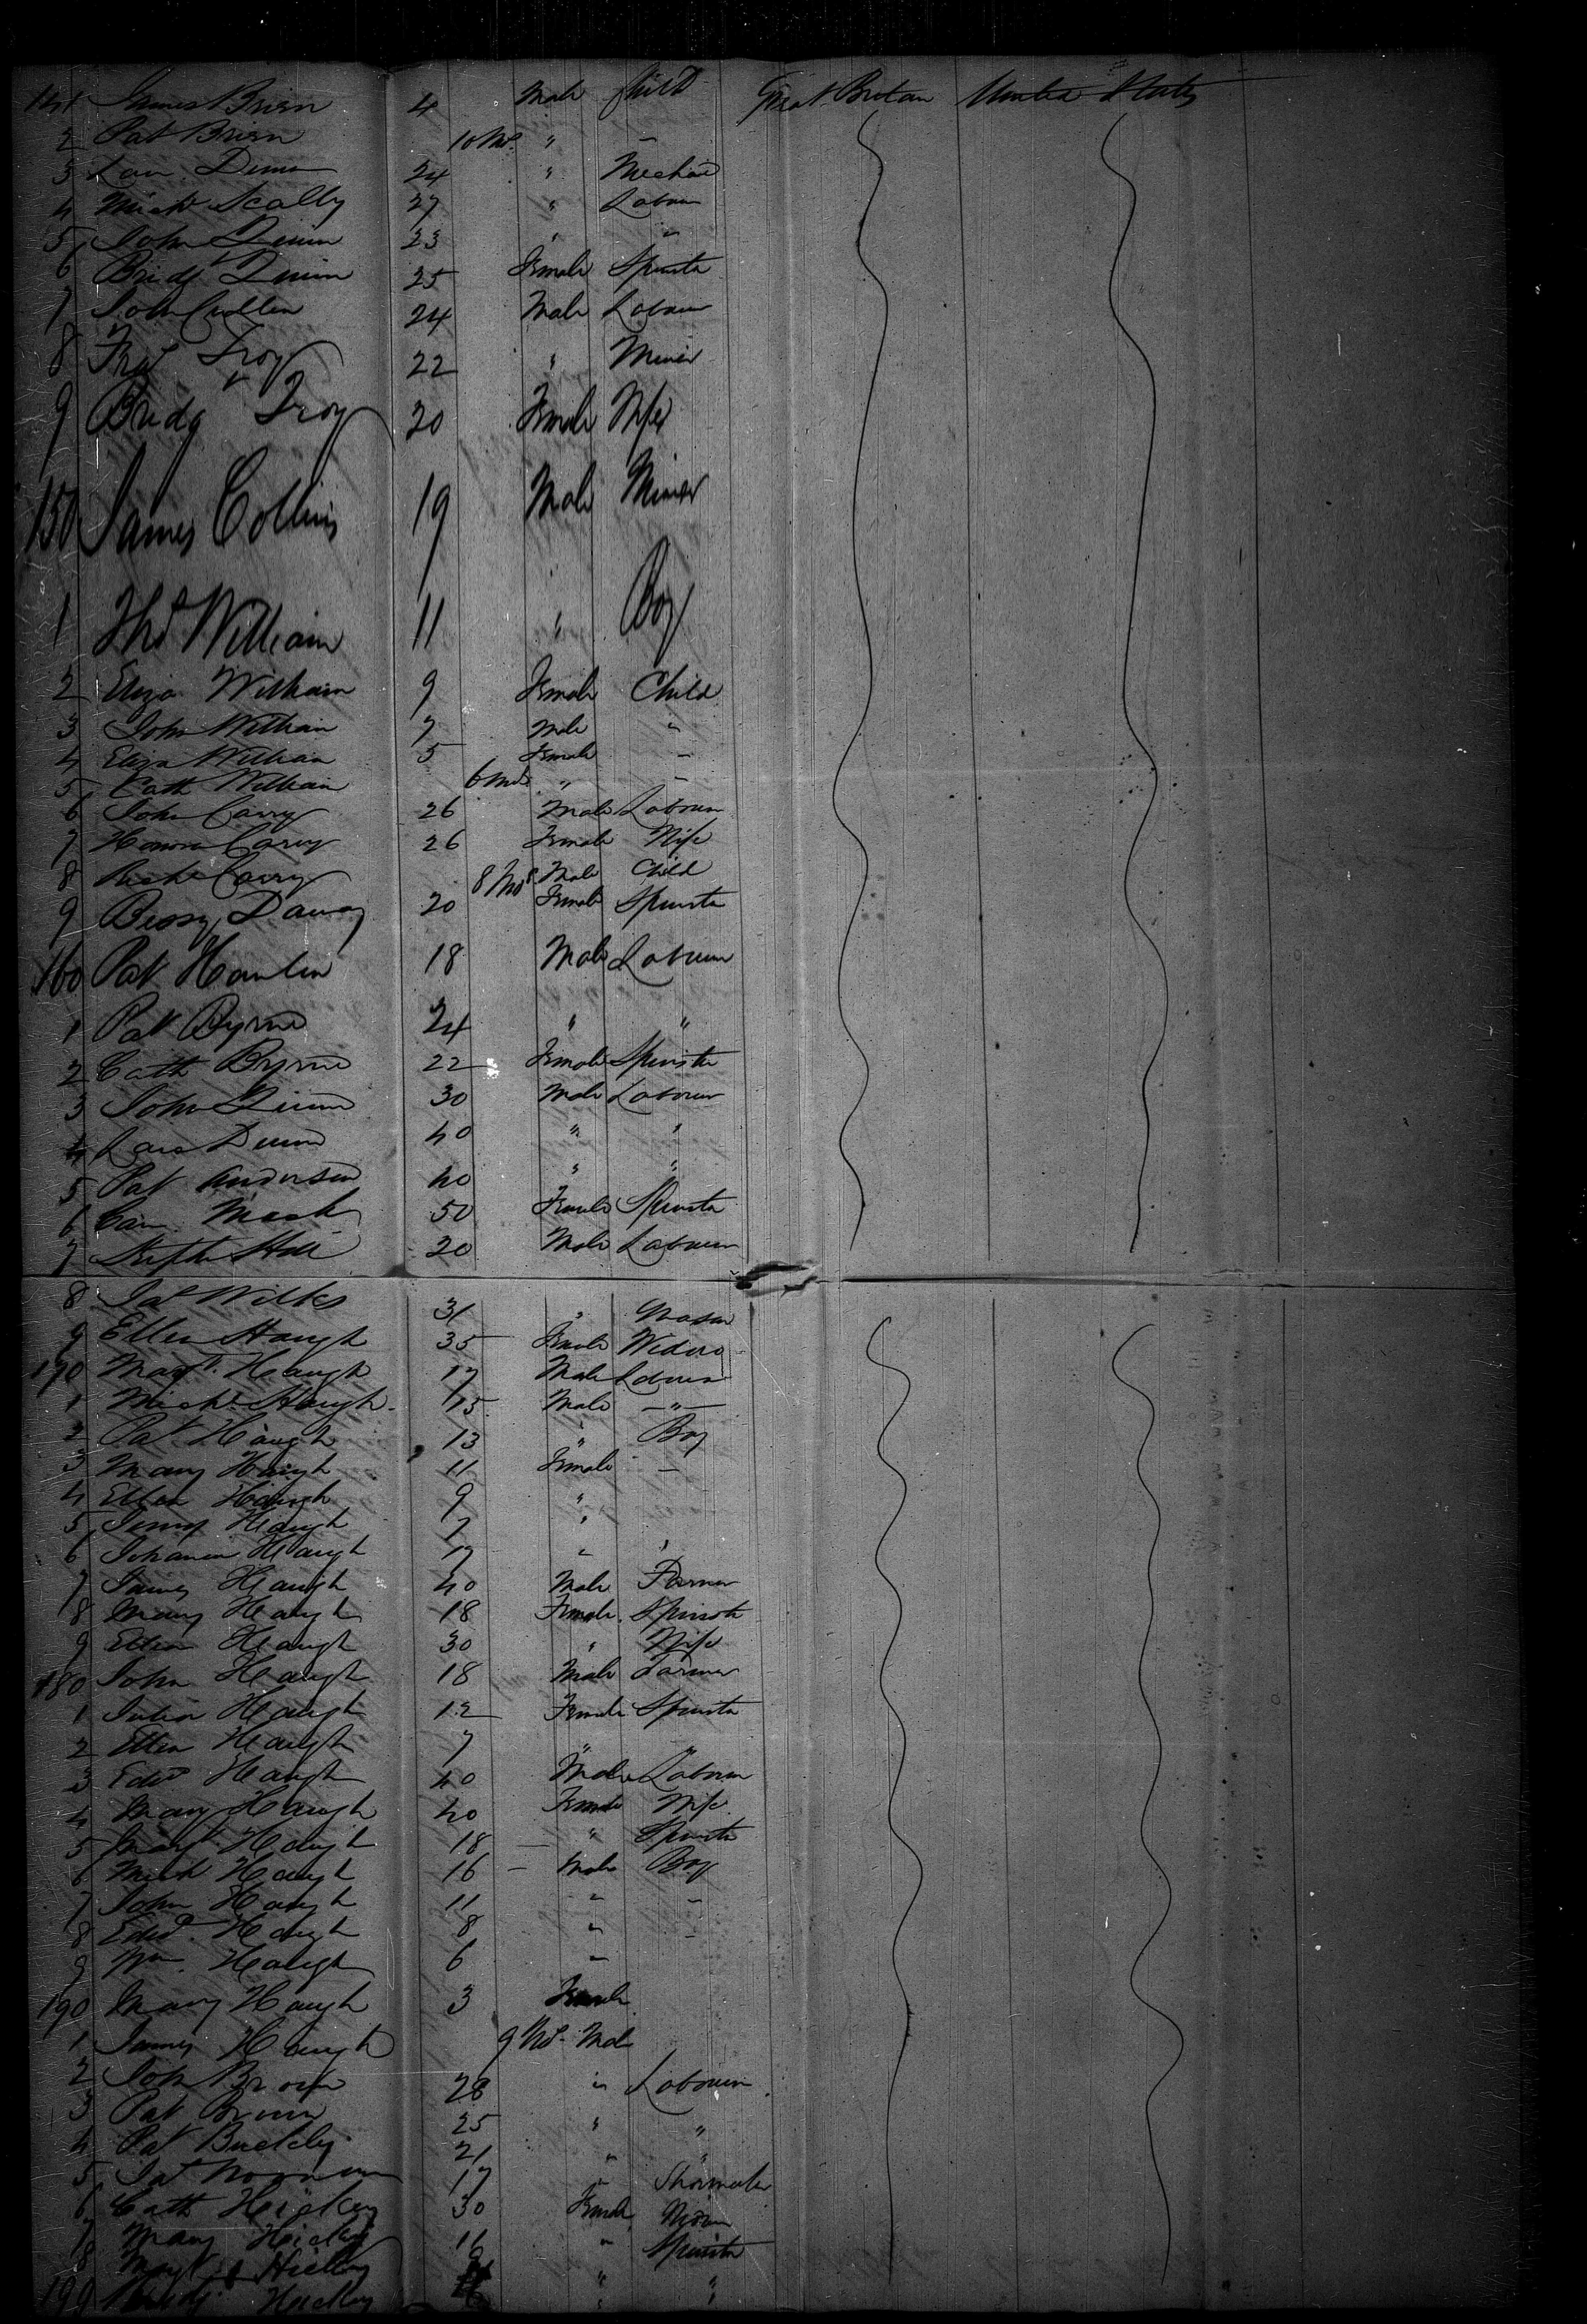 141 James Brien 4 Male Child Great Britain United States
2 Pat Brien 10 Mos "
3 Dunn 24 " Mechanic
4 Mich Scally 27 " Labour
5 John Dunn 23 " "
6 Bridgt Dunn 25 Female Spinster
7 John Cullen 24 Male Labour
8 Troy 22 " Miner
9 Bridgt Troy 20 Female Wife
150 James Collins 19 Male Miner
1 Thos William 11 " Boy
2 Eliza William 9 Female Child
3 John William 7 Male "
4 Eliza William 5 Female "
5 Cath William 6 Mos " "
6 John Carry 26 Male Labour
7 Honora Carry 26 Female Wife
8 Richd Carry 8 Mos Male Child
9 Bessy 20 Female Spinster
160 Pat Hanlon 18 Male Labour
1 Pat Byrne 24 " "
2 Cath Byrne 22 Female Spinster
3 John Dunn 30 Male Labour
4 Dunn 40 " "
5 Pat Anderson 40 " "
6 50 Female Spinster
7 20 Male Labour
8 Jas Wilks 31 " Mason
9 Ellen Haugh 35 Female Widow
170 Haugh 17 Male Labour
1 Michl Haugh 15 Male "
2 Pat Haugh 13 " Boy
3 Mary Haugh 11 Female
4 Ellen Haugh 9 "
5 Haugh 7 "
6 Johanna Haugh 17 " "
7 James Haugh 40 Male Farmer
8 Mary Haugh 18 Female Spinster
9 Ellen Haugh 30 " Wife
180 John Haugh 18 Male Farmer
1 Julia Haugh 12 Female Spinster
2 Ellen Haugh 7 " "
3 Edwd Haugh 40 Male Labour
4 Mary Haugh 40 Female Wife
5 Margt Haugh 18 " Spinster
6 Mich Haugh 16 Male Boy
7 John Haugh 11 " "
8 Edwd Haugh 8 " "
9 Wm Haugh 6 "
190 Mary Haugh 3 Female
1 James Haugh 9 Mos Male
2 John Brown 28 " Labour
3 Pat 25 " "
4 Pat Buckley 21 " "
5 Jat 17 " Shoemaker
6 Cath Hickey 30 Female
7 Mary Hickey 16 " Spinster
8 Margt Hickey " "
199 Bridgt Hickey " "